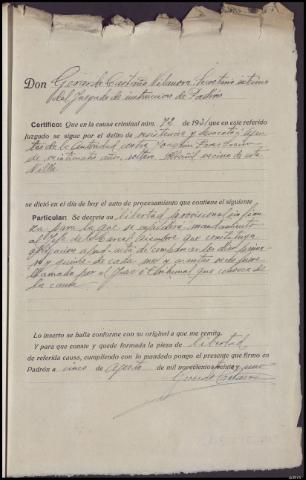 Don Gerardo Castaño Vilanova Secretario interino
del Juzgado de instruccion de Padrón
Certifico: Que en la causa criminal núm. 72 de 1931 que en este referido
Juzgado se sigue por el delito de resistencia y desacato a agen-
tes de la autoridad contra Joaquin
de años, soltero, vecino de esta
Villa
se dictó en el día de hoy el auto de procesamiento que contiene el siguiente
Particular: Se decreta su libertad provisional sin fian
za para la que se expedirá mandamiento
al Jefe de la Carcel, que constituya
obligacion apud-acta de comparecer los dias prime-
ro y quince de cada mes y cuantas veces fuere
llamado por el Juez o Tribunal que conozca de
la causa
Lo inserto se halla conforme con su original a que me remito.
Y para que conste y quede formada la pieza de libertad
de referida causa, cumpliendo con lo mandado pongo el presente que firmo en
Padrón a cinco de Agosto de mil novecientos treinta y uno
Gerardo Castaño